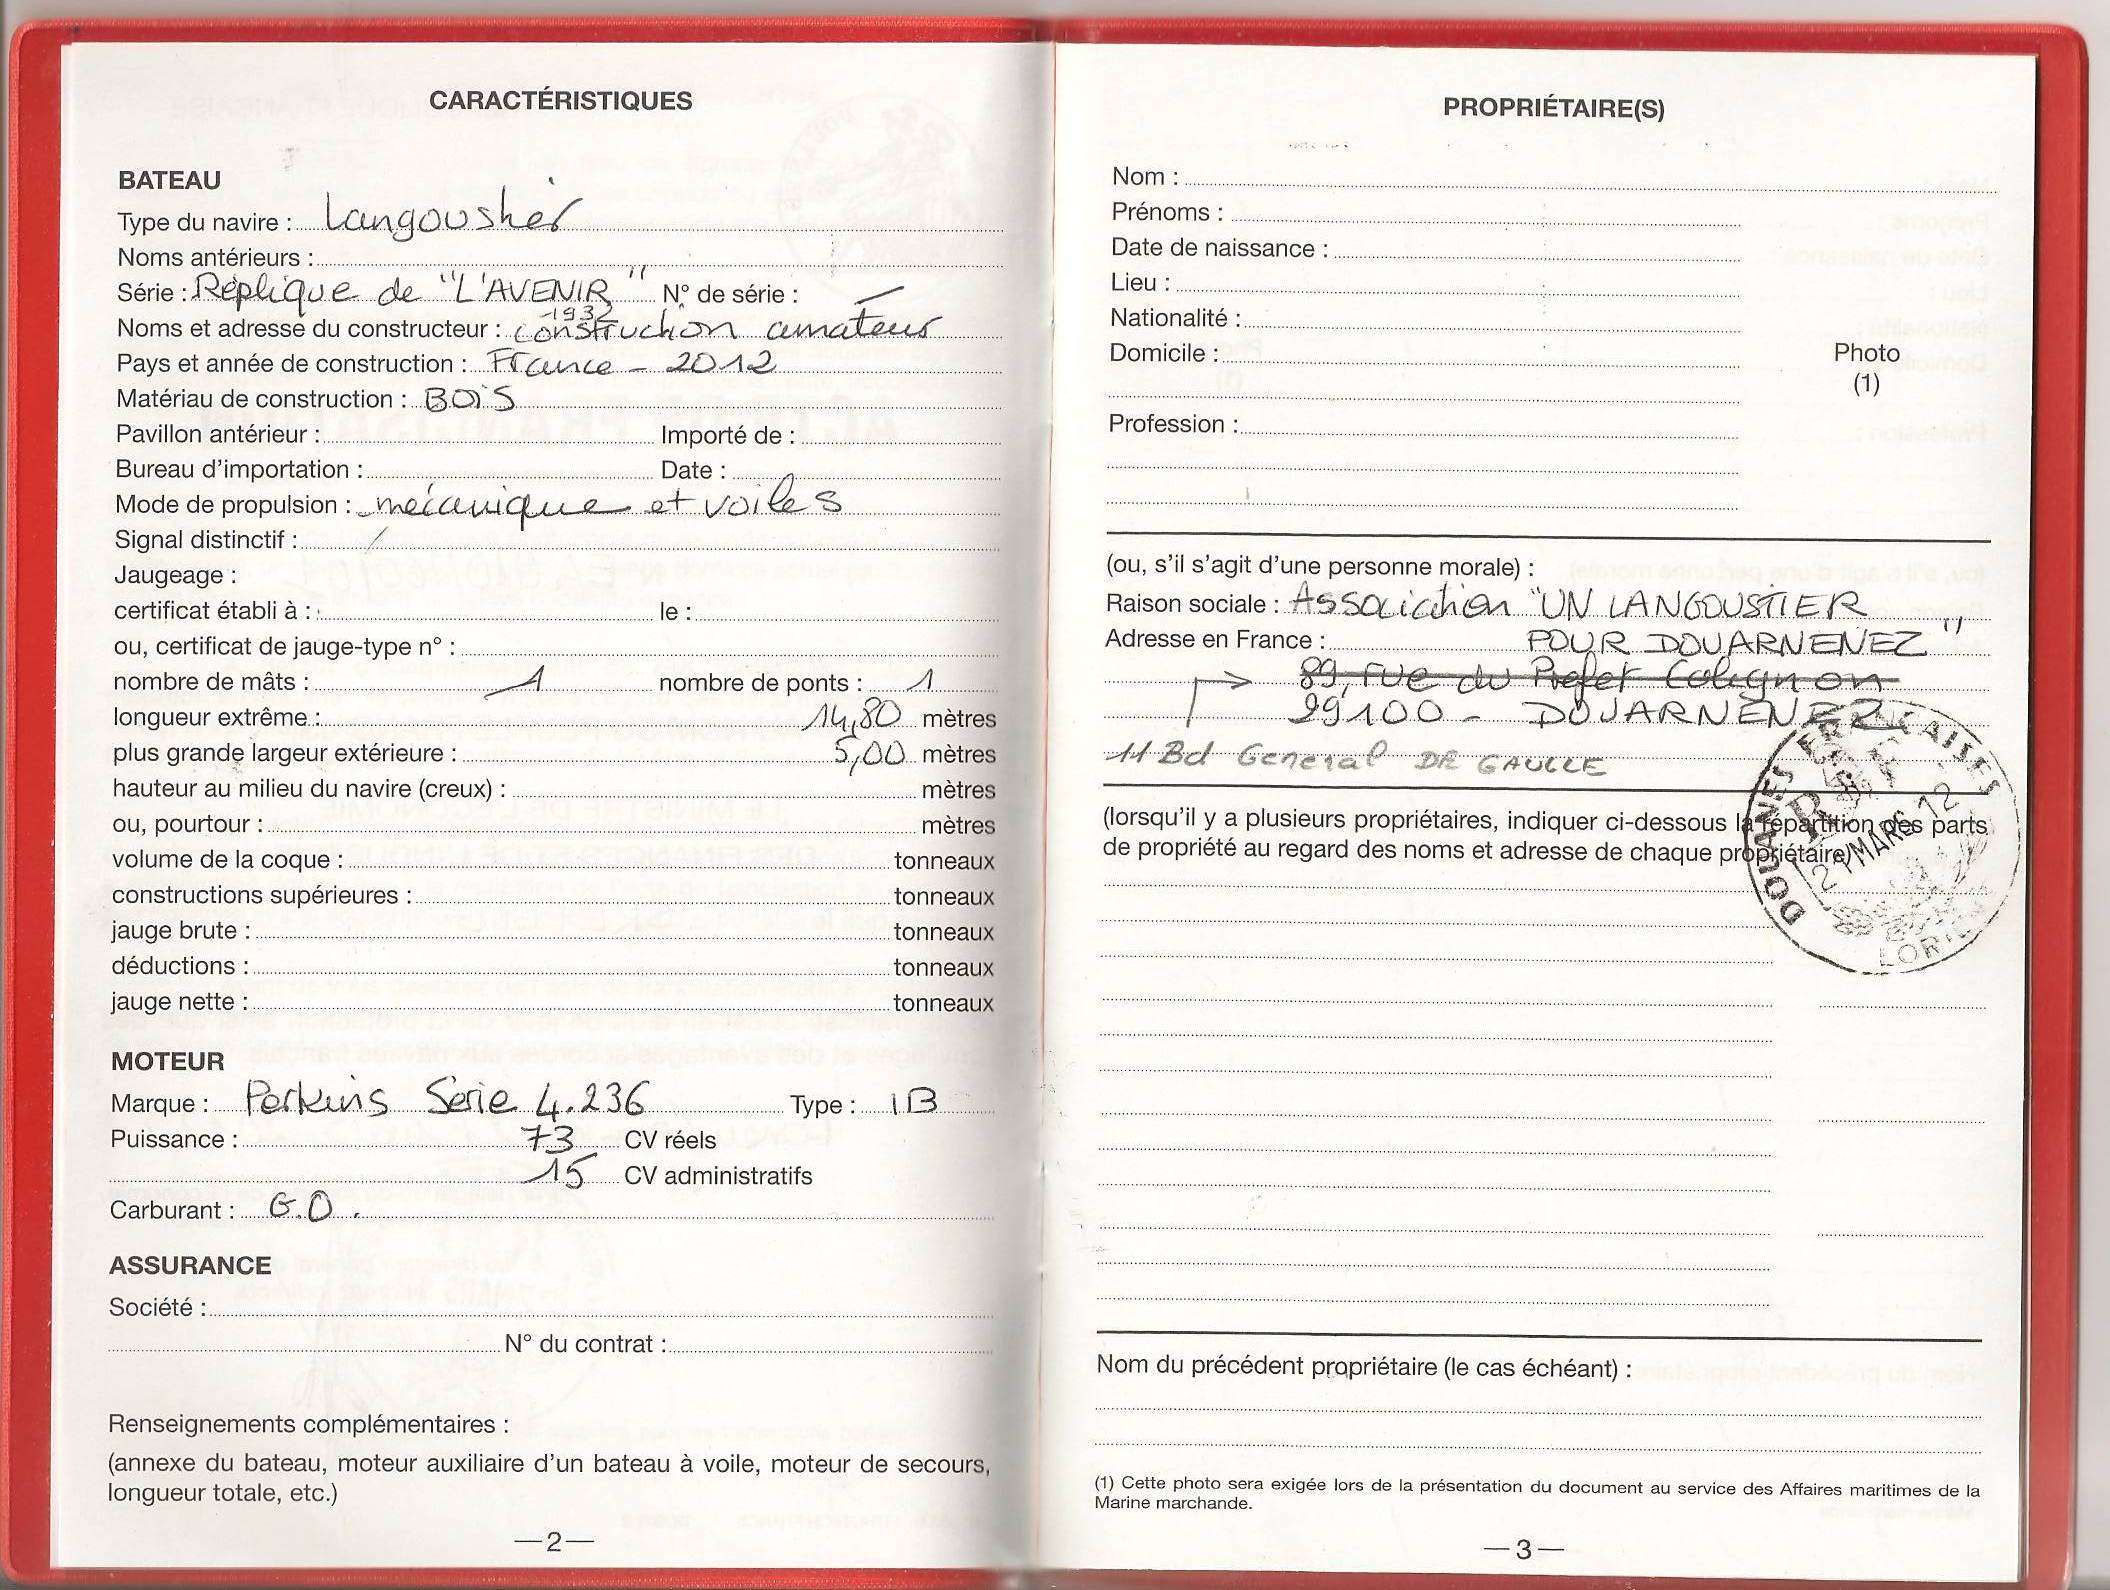 CARACTÉRISTIQUES
BATEAU
Type du navire : Langoustier
Noms antérieurs :
Série : Réplique de "L'AVENIR" N° de série : —
-1932
Noms et adresse du constructeur : construction amateur
Pays et année de construction : France - 2012
Matériau de construction : BOIS
Pavillon antérieur : Importé de :
Bureau d'importation : Date :
Mode de propulsion : mécanique et voiles
Signal distinctif : /
Jaugeage :
certificat établi à : le :
ou, certificat de jauge-type n° :
nombre de mâts : 1 nombre de ponts : 1
longueur extrême : 14,80 mètres
plus grande largeur extérieure : 5,00 mètres
hauteur au milieu du navire (creux) : mètres
ou, pourtour : mètres
volume de la coque : tonneaux
constructions supérieures : tonneaux
jauge brute : tonneaux
déductions : tonneaux
jauge nette : tonneaux
MOTEUR
Marque : Perkins Serie 4.236 Type : 1B
Puissance : 73 CV réels
15 CV administratifs
Carburant : G.O.
ASSURANCE
Société :
N° du contrat :
Renseignements complémentaires :
(annexe du bateau, moteur auxiliaire d'un bateau à voile, moteur de secours,
longueur totale, etc.)
—2—
PROPRIÉTAIRE(S)
Nom :
Prénoms :
Date de naissance :
Lieu :
Nationalité :
Domicile :
Photo
(1)
Profession :
(ou, s'il s'agit d'une personne morale) :
Raison sociale : Association "UN LANGOUSTIER
Adresse en France : POUR DOUARNENEZ"
89, rue du Prefet Colignon
29100 - DOUARNENEZ
11 Bd General DE GAULLE
(lorsqu'il y a plusieurs propriétaires, indiquer ci-dessous la répartition des parts
de propriété au regard des noms et adresse de chaque propriétaire)
DOUANES FRANÇAISES
MARS 12
LORIENT
Nom du précédent propriétaire (le cas échéant) :
(1) Cette photo sera exigée lors de la présentation du document au service des Affaires maritimes de la
Marine marchande.
—3—